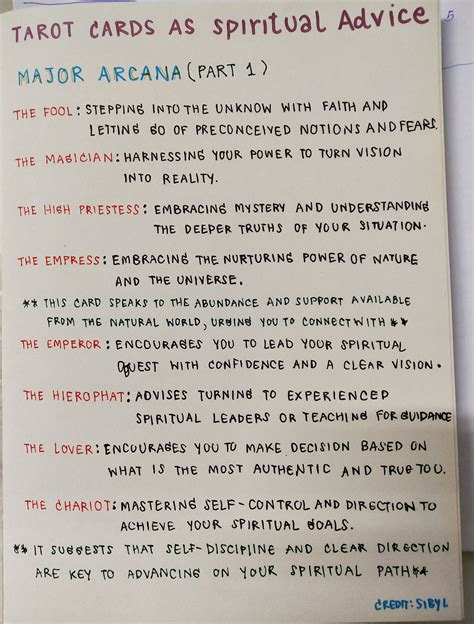 TAROT CARDS AS SPIRITUAL ADVICE
5
MAJOR ARCANA (PART 1)
THE FOOL: STEPPING INTO THE UNKNOW WITH FAITH AND
LETTING GO OF PRECONCEIVED NOTIONS AND FEARS.
THE MAGICIAN: HARNESSING YOUR POWER TO TURN VISION
INTO REALITY.
THE HIGH PRIESTESS: EMBRACING MYSTERY AND UNDERSTANDING
THE DEEPER TRUTHS OF YOUR SITUATION.
THE EMPRESS: EMBRACING THE NURTURING POWER OF NATURE
AND THE UNIVERSE.
** THIS CARD SPEAKS TO THE ABUNDANCE AND SUPPORT AVAILABLE
FROM THE NATURAL WORLD, URGING YOU TO CONNECT WITH **
THE EMPEROR: ENCOURAGES YOU TO LEAD YOUR SPIRITUAL
QUEST WITH CONFIDENCE AND A CLEAR VISION.
THE HIEROPHAT: ADVISES TURNING TO EXPERIENCED
SPIRITUAL LEADERS OR TEACHING FOR GUIDANCE
THE LOVER: ENCOURAGES YOU TO MAKE DECISION BASED ON
WHAT IS THE MOST AUTHENTIC AND TRUE TO U.
THE CHARIOT: MASTERING SELF-CONTROL AND DIRECTION TO
ACHIEVE YOUR SPIRITUAL GOALS.
** IT SUGGESTS THAT SELF-DISCIPLINE AND CLEAR DIRECTION
ARE KEY TO ADVANCING ON YOUR SPIRITUAL PATH **
CREDIT: SIBYL